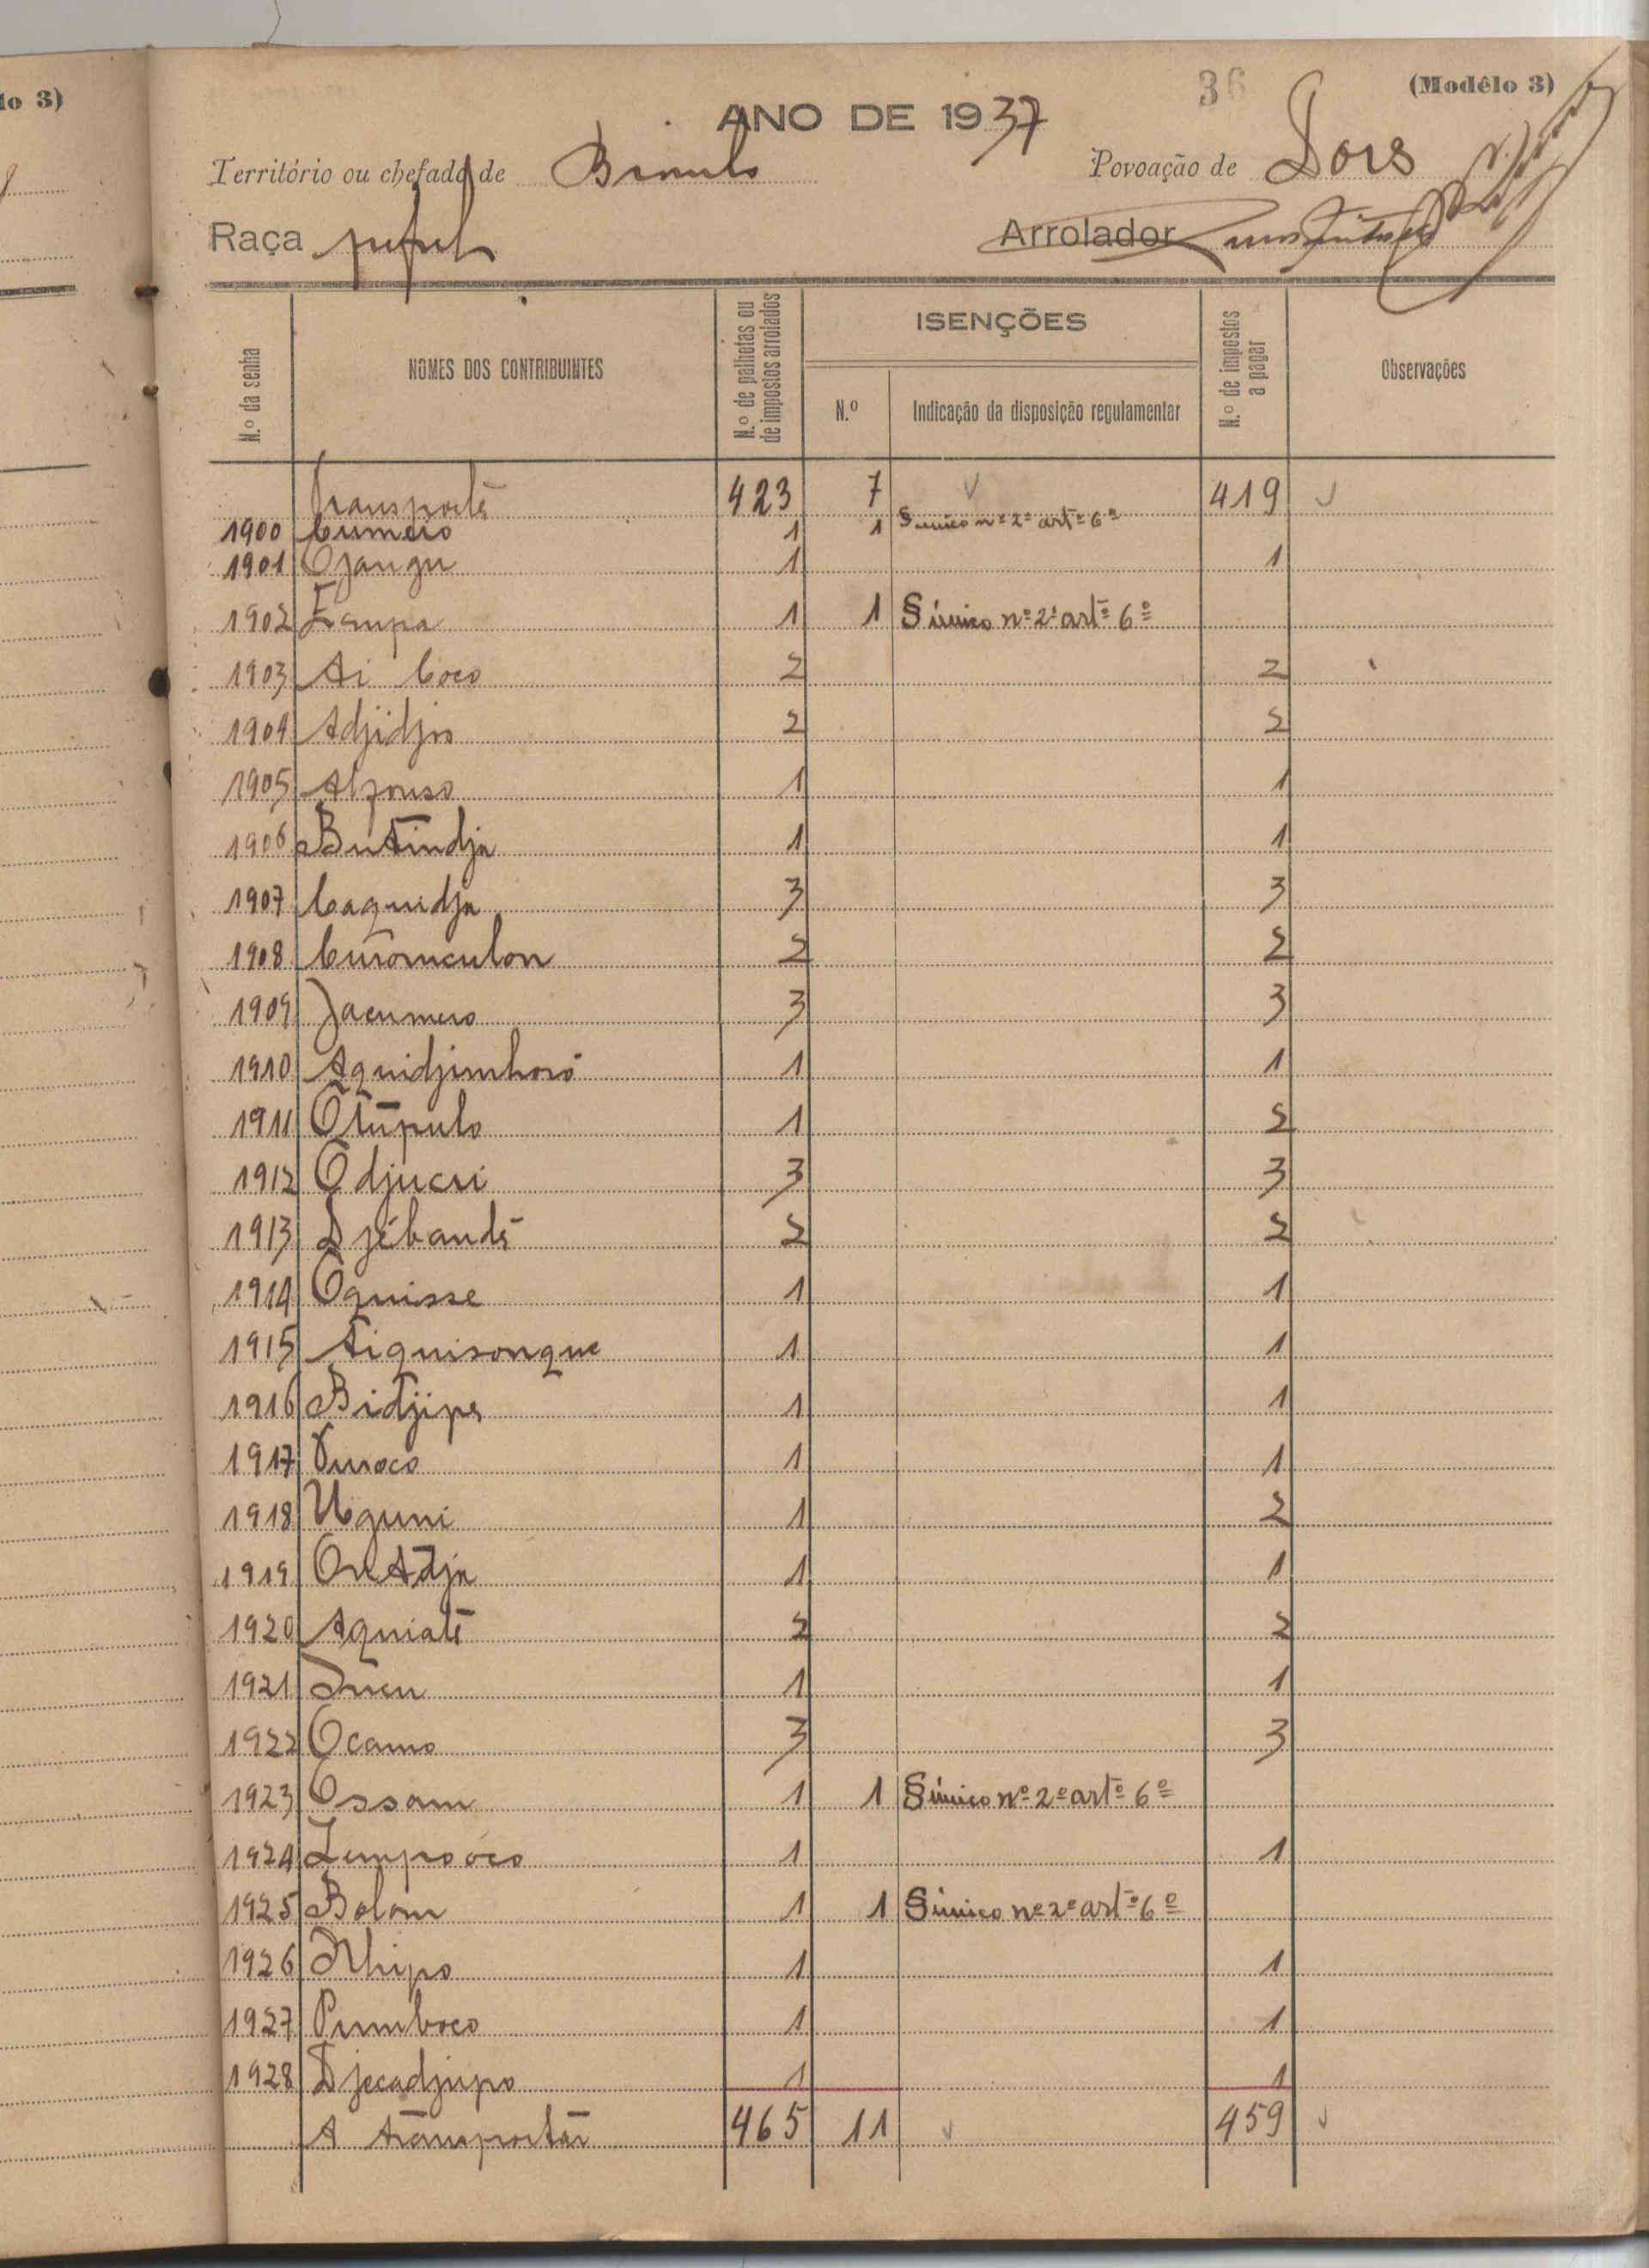 lo 3)
36
(Modêlo 3)
ANO DE 1937
Território ou chefado de
Povoação de Dois
Raça papel
Arrolador
N.º da senha
NOMES DOS CONTRIBUINTES
N.º de palhotas ou de impostos arrolados
ISENÇÕES
N.º
Indicação da disposição regulamentar
N.º de impostos a pagar
Observações
Transporte 423 7 419
1900 Cumeio 1 1 § único nº 2º artº 6º
1901 Ojangu 1 1
1902 1 1 § único nº 2º artº 6º
1903 Ai Coco 2 2
1904 Adjidjo 2 2
1905 Alfonso 1 1
1906 Butindja 1 1
1907 Caquidja 3 3
1908 2 2
1909 Jacumeio 3 3
1910 1 1
1911 Otupulo 1 2
1912 Odjucri 3 3
1913 Djébandé 2 2
1914 Oquisse 1 1
1915 Tiquisonque 1 1
1916 Bidjipe 1 1
1917 1 1
1918 1 2
1919 1 1
1920 Aquiaté 2 2
1921 1 1
1922 Ocamo 3 3
1923 Ossam 1 1 § único nº 2º artº 6º
1924 1 1
1925 Bolom 1 1 § único nº 2º artº 6º
1926 1 1
1927 Pumboco 1 1
1928 Djecadjupo 1 1
A transportar 465 11 459